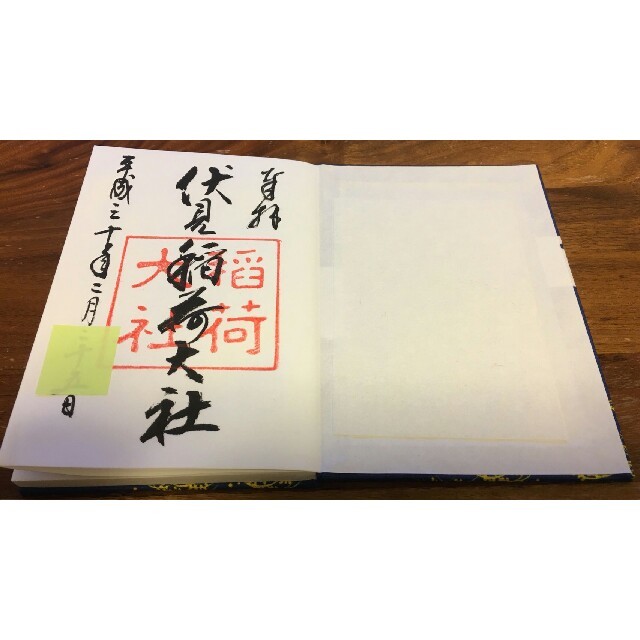 奉拝
伏見稲荷大社
稲荷
大社
平成三十年二月
日